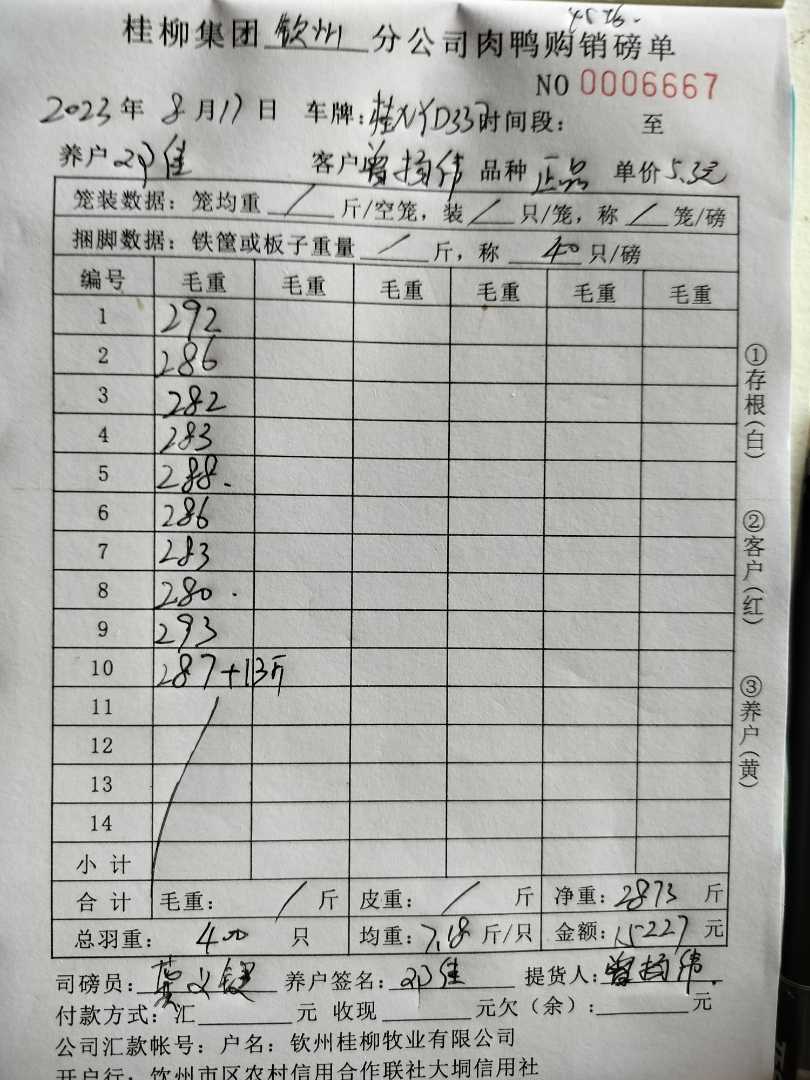 桂柳集团 钦州 分公司肉鸭购销磅单
NO 0006667
2023年 8月17日 车牌: 时间段: 至
养户 邓佳 客户 曾扬伟 品种 正品 单价 5.3元
笼装数据: 笼均重 / 斤/空笼, 装 / 只/笼, 称 / 笼/磅
捆脚数据: 铁筐或板子重量 / 斤, 称 40 只/磅
编号 毛重 毛重 毛重 毛重 毛重 毛重
1 292
2 286
3 282
4 283
5 288.
6 286
7 283
8 280.
9 293
10 287+13斤
11
12
13
14
小计
合计 毛重: / 斤 皮重: / 斤 净重: 2873 斤
总羽重: 400 只 均重: 7.18 斤/只 金额: 15227 元
司磅员: 养户签名: 邓佳 提货人: 曾扬伟.
付款方式: 汇 元 收现 元欠(余): 元
公司汇款帐号: 户名: 钦州桂柳牧业有限公司
开户行: 钦州市区农村信用合作联社大垌信用社
①存根(白)
②客户(红)
③养户(黄)